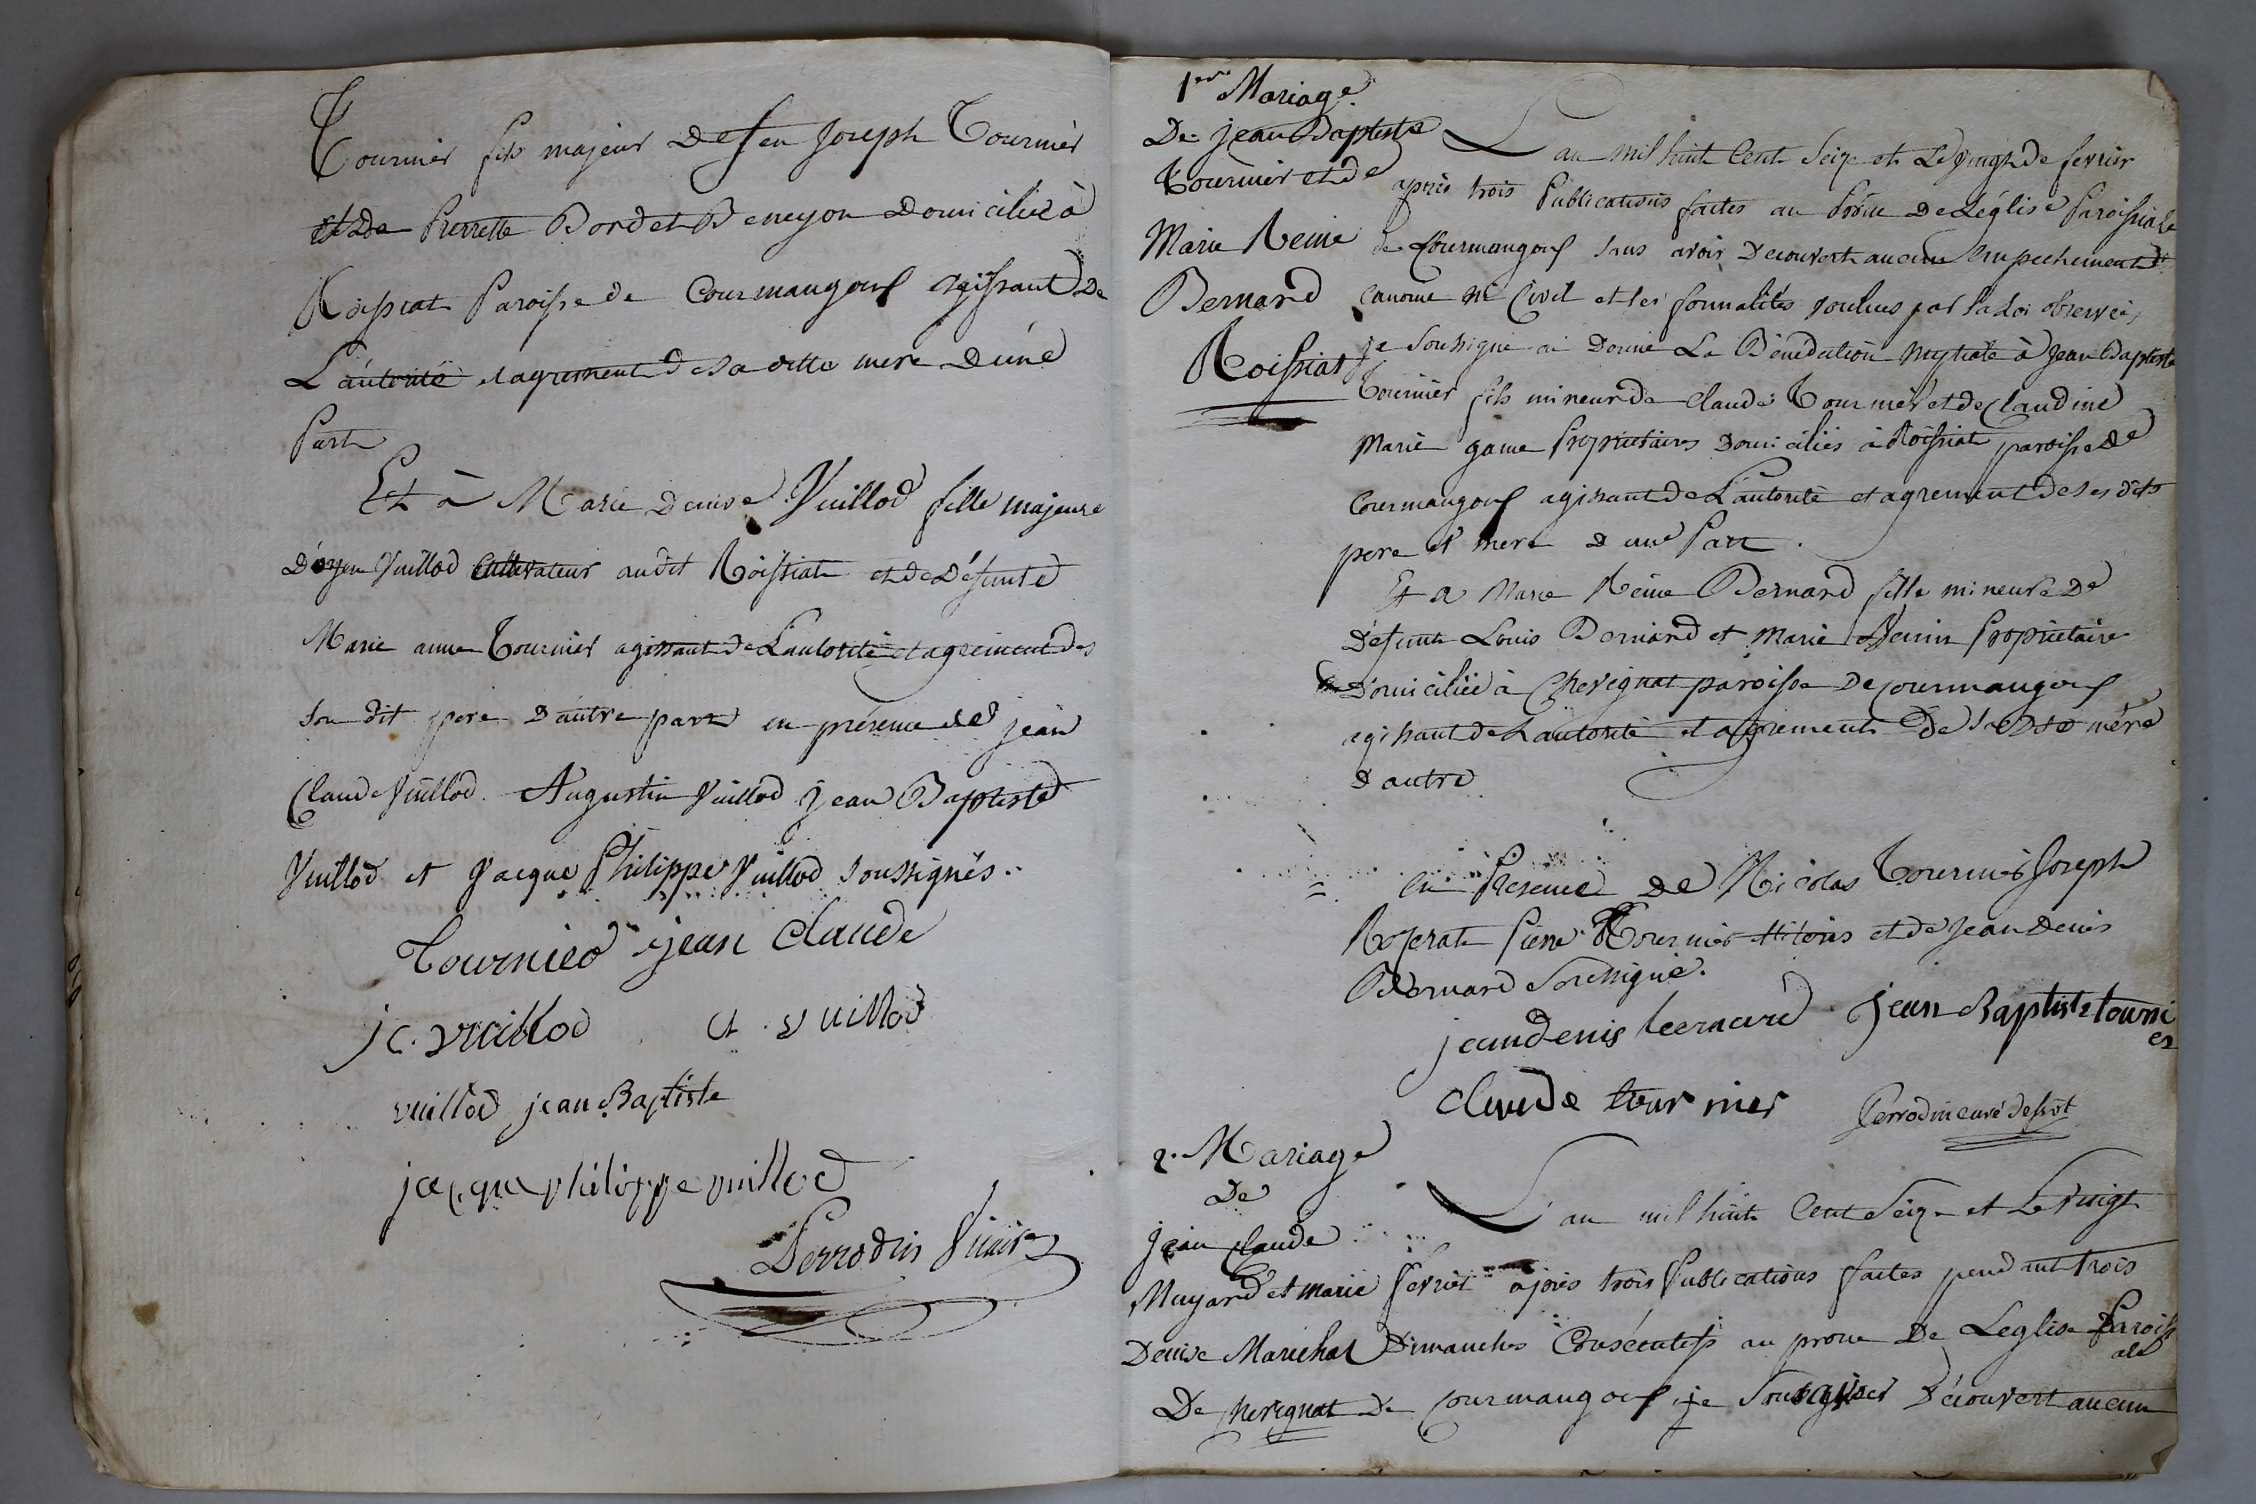 Tournier fils majeur de feu Joseph Tournier
et de Pierrette Bordet Beneyon Domiciliée à
Roissiat Paroisse de Courmangoux agissant De
L'autorité et agrement de sa ditte mere D'une
Part
Et à Marie Denise Vuillod fille majeure
Vuillod Cultivateur audit Roissiat et de Défunte
Marie anne Tournier agissant de L'autorité et agrement de
son dit pere D'autre part en présence de jean
Claude Vuillod. Augustin Vuillod Jean Baptiste
Vuillod et Jacque Philippe Vuillod soussignés.
Tournier jean claude
j c. vuillod A. vuillod
vuillod jean Baptiste
jacque philippe vuillod
Perrodin Vicaire
1er Mariage
De jean Baptiste
Tournier et de
Marie Reine
Bernard
Roissiat
L'an mil huit Cent Seize et Le vingt de fevrier
après trois Publications faites au Prône De L'église Paroissiale
de Courmangoux sans avoir Decouvert aucun Empechement
canonie ni Civil et les formalités voulues par la Loi observées,
je soussigné ai Donné La Bénédiction Nuptiale à Jean Baptiste
Tournier fils mineur de Claude Tournier et de Claudine
Marie game Propriétaires Domiciliés à Roissiat paroisse de
Courmangoux agissant de L'autorité et agrement de ses dits
pere et mere d'une Part.
Et a Marie Reine Bernard fille mineure De
Défunt Louis Bernard et Marie Propriétaire
Domiciliée à Chevignat paroisse De Courmangoux
agissant de L'autorité et agrement De sa dte mère
d'autre
en Présence de Nicolas Tournier Joseph
Pierre Tournier et de Jean Denis
Bernard Soussigné.
jean denis bernard jean Baptiste tourni
er
claude tournier Perrodin curé desvt
2. Mariage
De
jean Claude
Muyard et marie
Denise Marichal
De Chevignat
L'an mil huit Cent Seize et Le Vingt
Fevrier après trois Publications faites pendant trois
Dimanches Consécutifs au prone De L'eglise Paroiss
ale
De Courmangoux je Découvert aucun